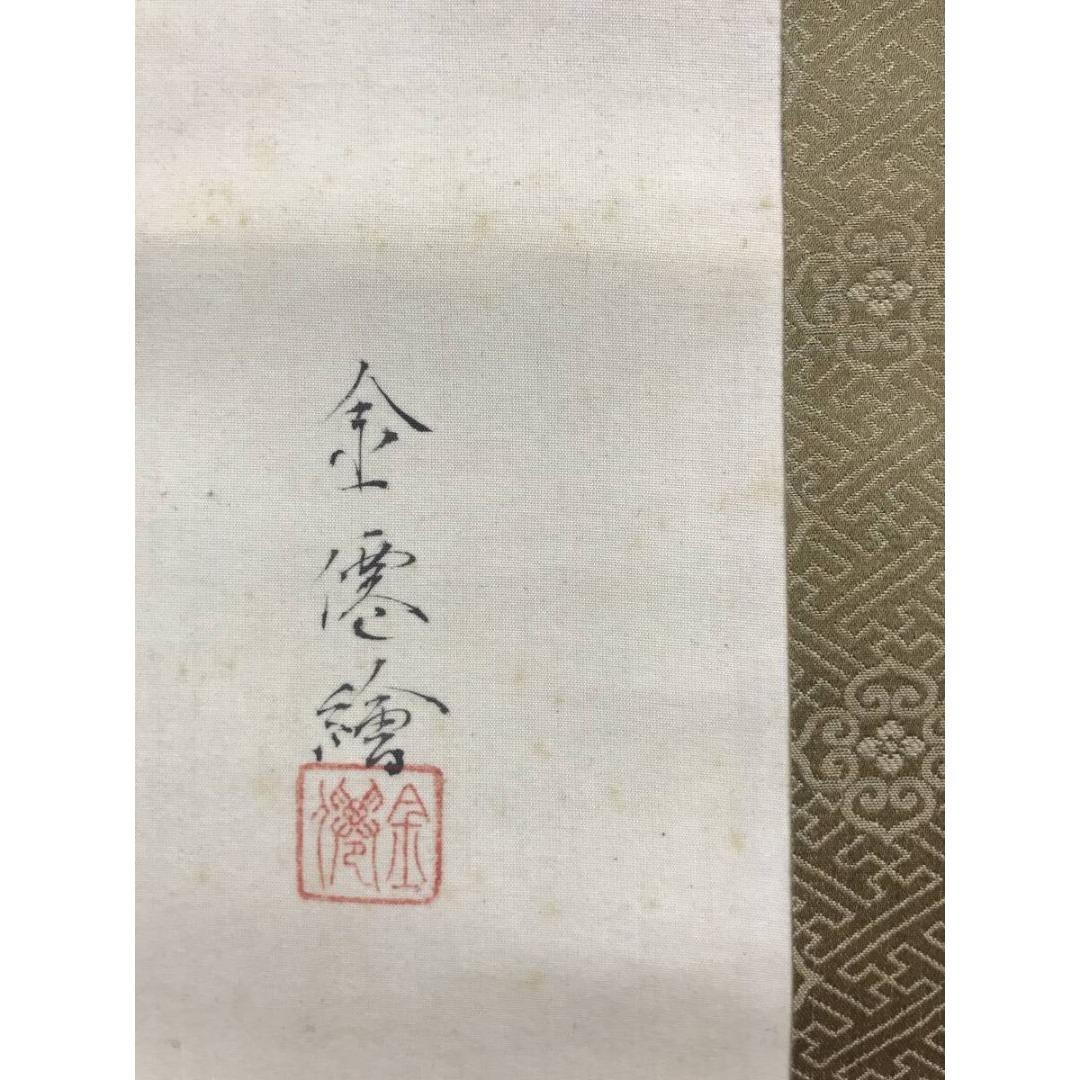 金僊繪
金僊